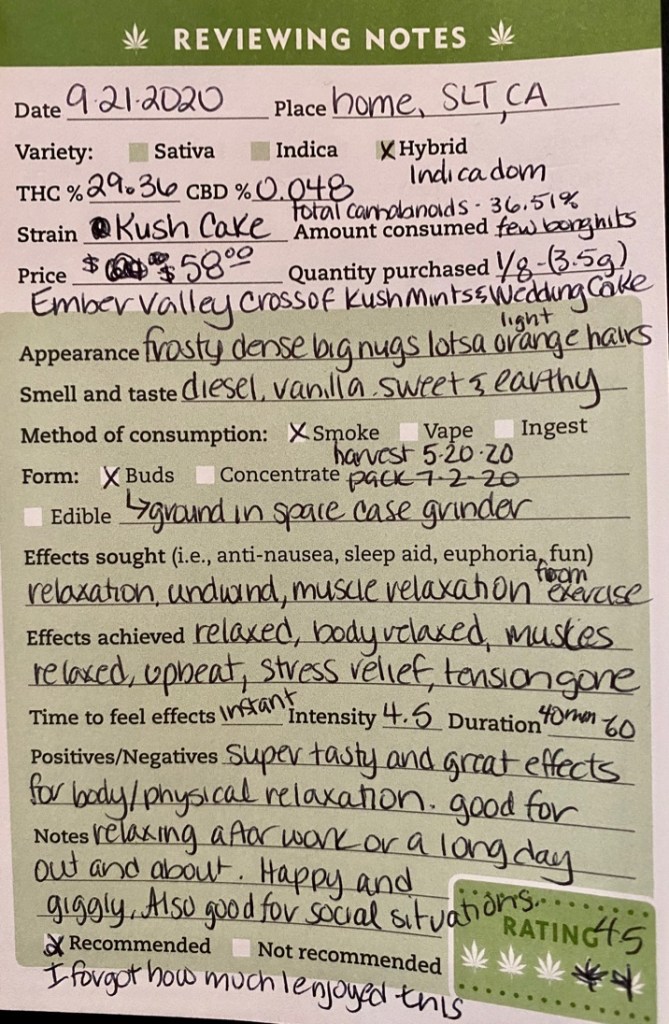 REVIEWING NOTES
Date 9.21.2020 Place home, SLT, CA
Variety: Sativa Indica X Hybrid
Indica dom
THC % 29.36 CBD % 0.048
total cannabanoids - 36.51%
Strain Kush Cake Amount consumed few bong hits
Price $ $58.00 Quantity purchased 1/8 - (3.5g)
Ember Valley Cross of Kush Mints & Wedding Cake
light
Appearance frosty dense big nugs lotsa orange hairs
Smell and taste diesel, vanilla, sweet & earthy
Method of consumption: X Smoke Vape Ingest
harvest 5.20.20
Form: X Buds Concentrate pack 7-2-20
Edible ↳ ground in space case grinder
Effects sought (i.e., anti-nausea, sleep aid, euphoria, fun)
relaxation, undwind, muscle relaxation from exercise
Effects achieved relaxed, body relaxed, muscles
relaxed, upbeat, stress relief, tension gone
Time to feel effects instant Intensity 4.5 Duration 40min 60
Positives/Negatives super tasty and great effects
for body/physical relaxation. good for
Notes relaxing after work or a long day
out and about. Happy and
giggly. Also good for social situations..
RATING 4.5
X Recommended Not recommended
I forgot how much I enjoyed this